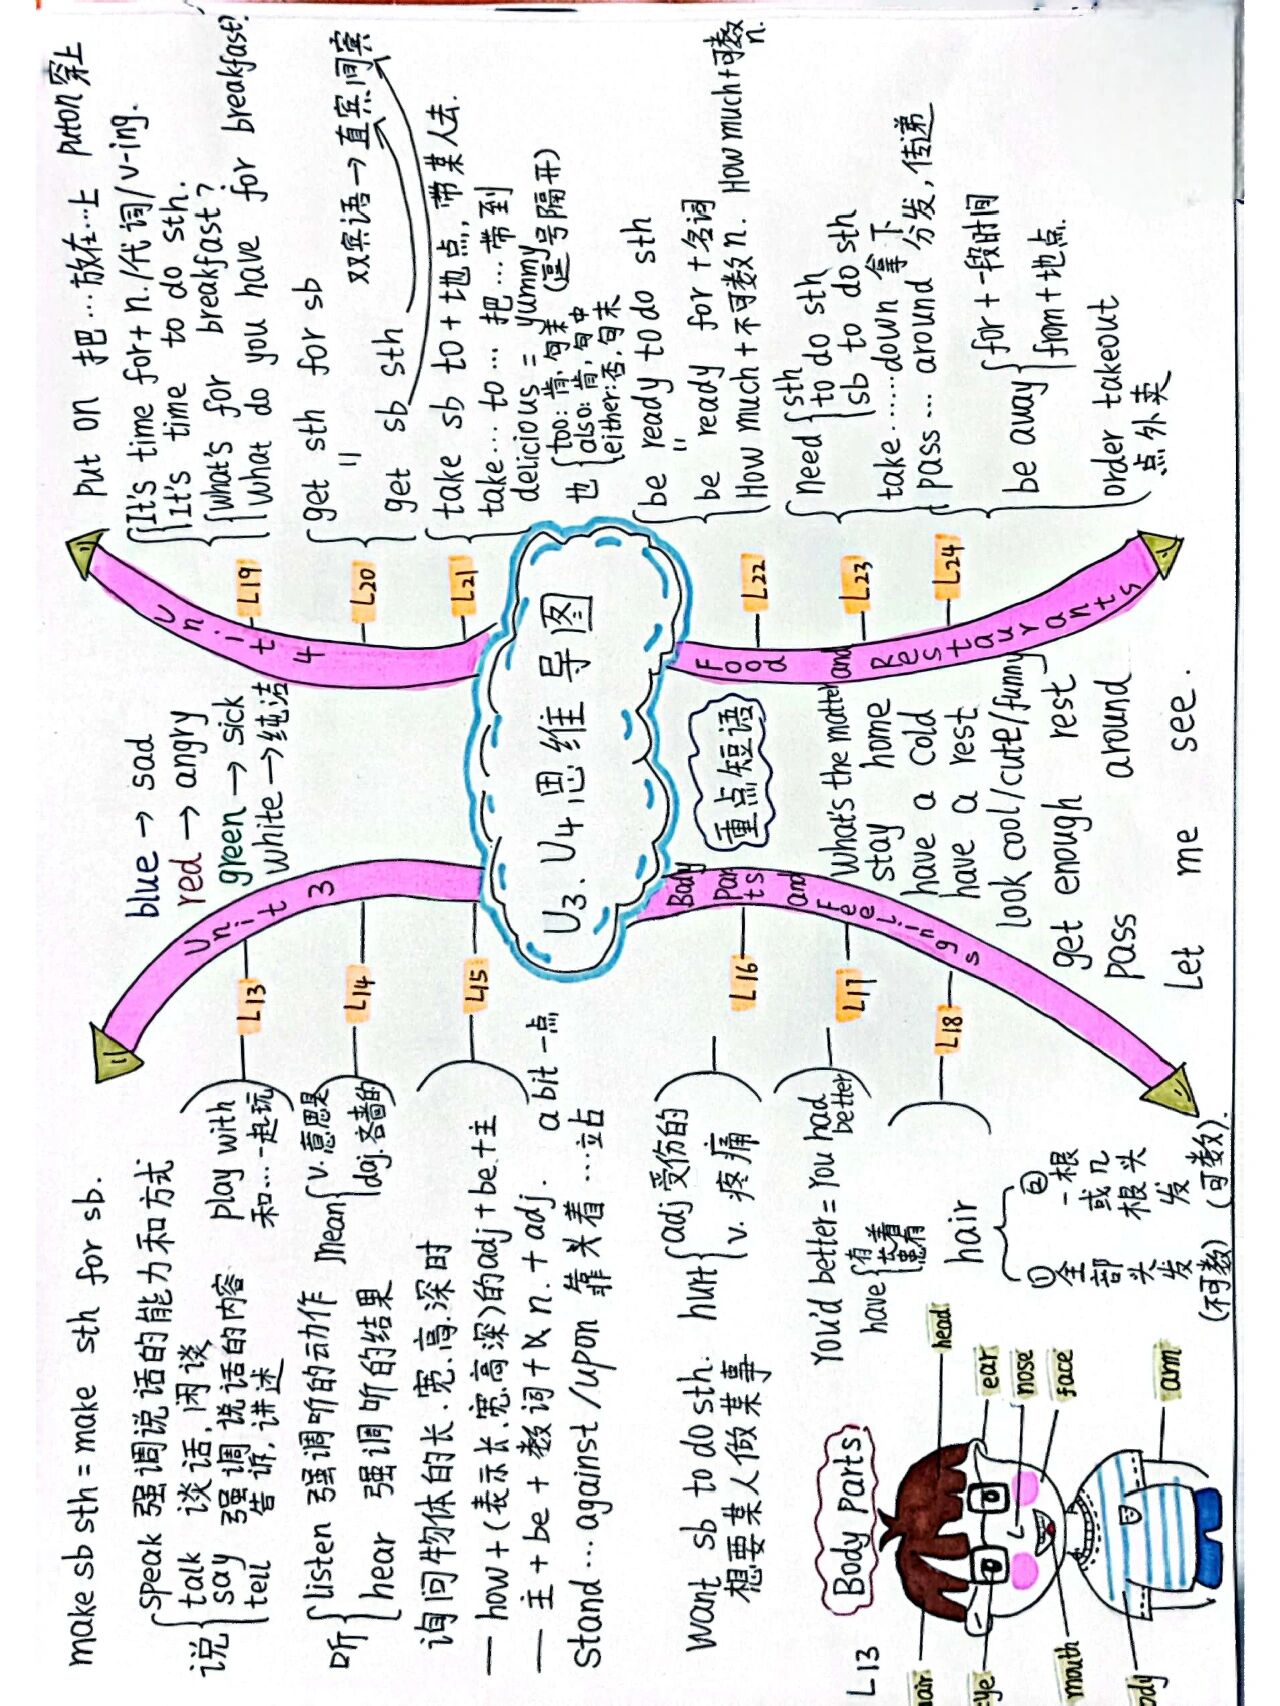 U3. U4思维导图
Unit 3
Body Parts and Feelings
make sb sth = make sth for sb.
说
speak 强调说话的能力和方式
talk 谈话,闲谈
say 强调说话的内容
tell 告诉,讲述
听
listen 强调听的动作
hear 强调听的结果
询问物体的长.宽.高.深时
— how + (表示长.宽.高深)的adj + be.+主
— 主 + be + 数词 + 休 n. + adj.
a bit 一点
stand … against/upon 靠着…站
want sb to do sth.
想要某人做某事
L13
play with
和…一起玩
L14
mean
v. 意思是
adj.吝啬的
L15
L16
hurt
adj 受伤的
v. 疼痛
L17
You'd better = You had better
have
有
患有
L18
hair
① 全部头发
(不可数)
② 一根或几根头发
(可数).
L13
Body Parts
head
ear
nose
face
arm
mouth
blue → sad
red → angry
green → sick
white → 纯洁
重点短语
What's the matter
stay home
have a cold
have a rest
look cool/cute/funny
get enough rest
pass around
Let me see.
Unit 4
Food and Restaurants
L19
put on 把…放在…上 puton 穿上
It's time for+ n./代词/v-ing.
It's time to do sth.
What's for breakfast?
What do you have for breakfast?
L20
get sth for sb
=
get sb sth
双宾语 → 直宾 间宾
L21
take sb to + 地点, 带某人去.
take … to … 把…带到
delicious = yummy
也
too: 肯,句末 (逗号隔开)
also: 肯,句中
either: 否, 句末
L22
be ready to do sth
=
be ready for + 名词
How much + 不可数 n. How much + 可数 n.
L23
need
sth
to do sth
sb to do sth
take ……down 拿下
pass … around 分发,传递
L24
be away
for + 一段时间
from + 地点.
order takeout
点外卖